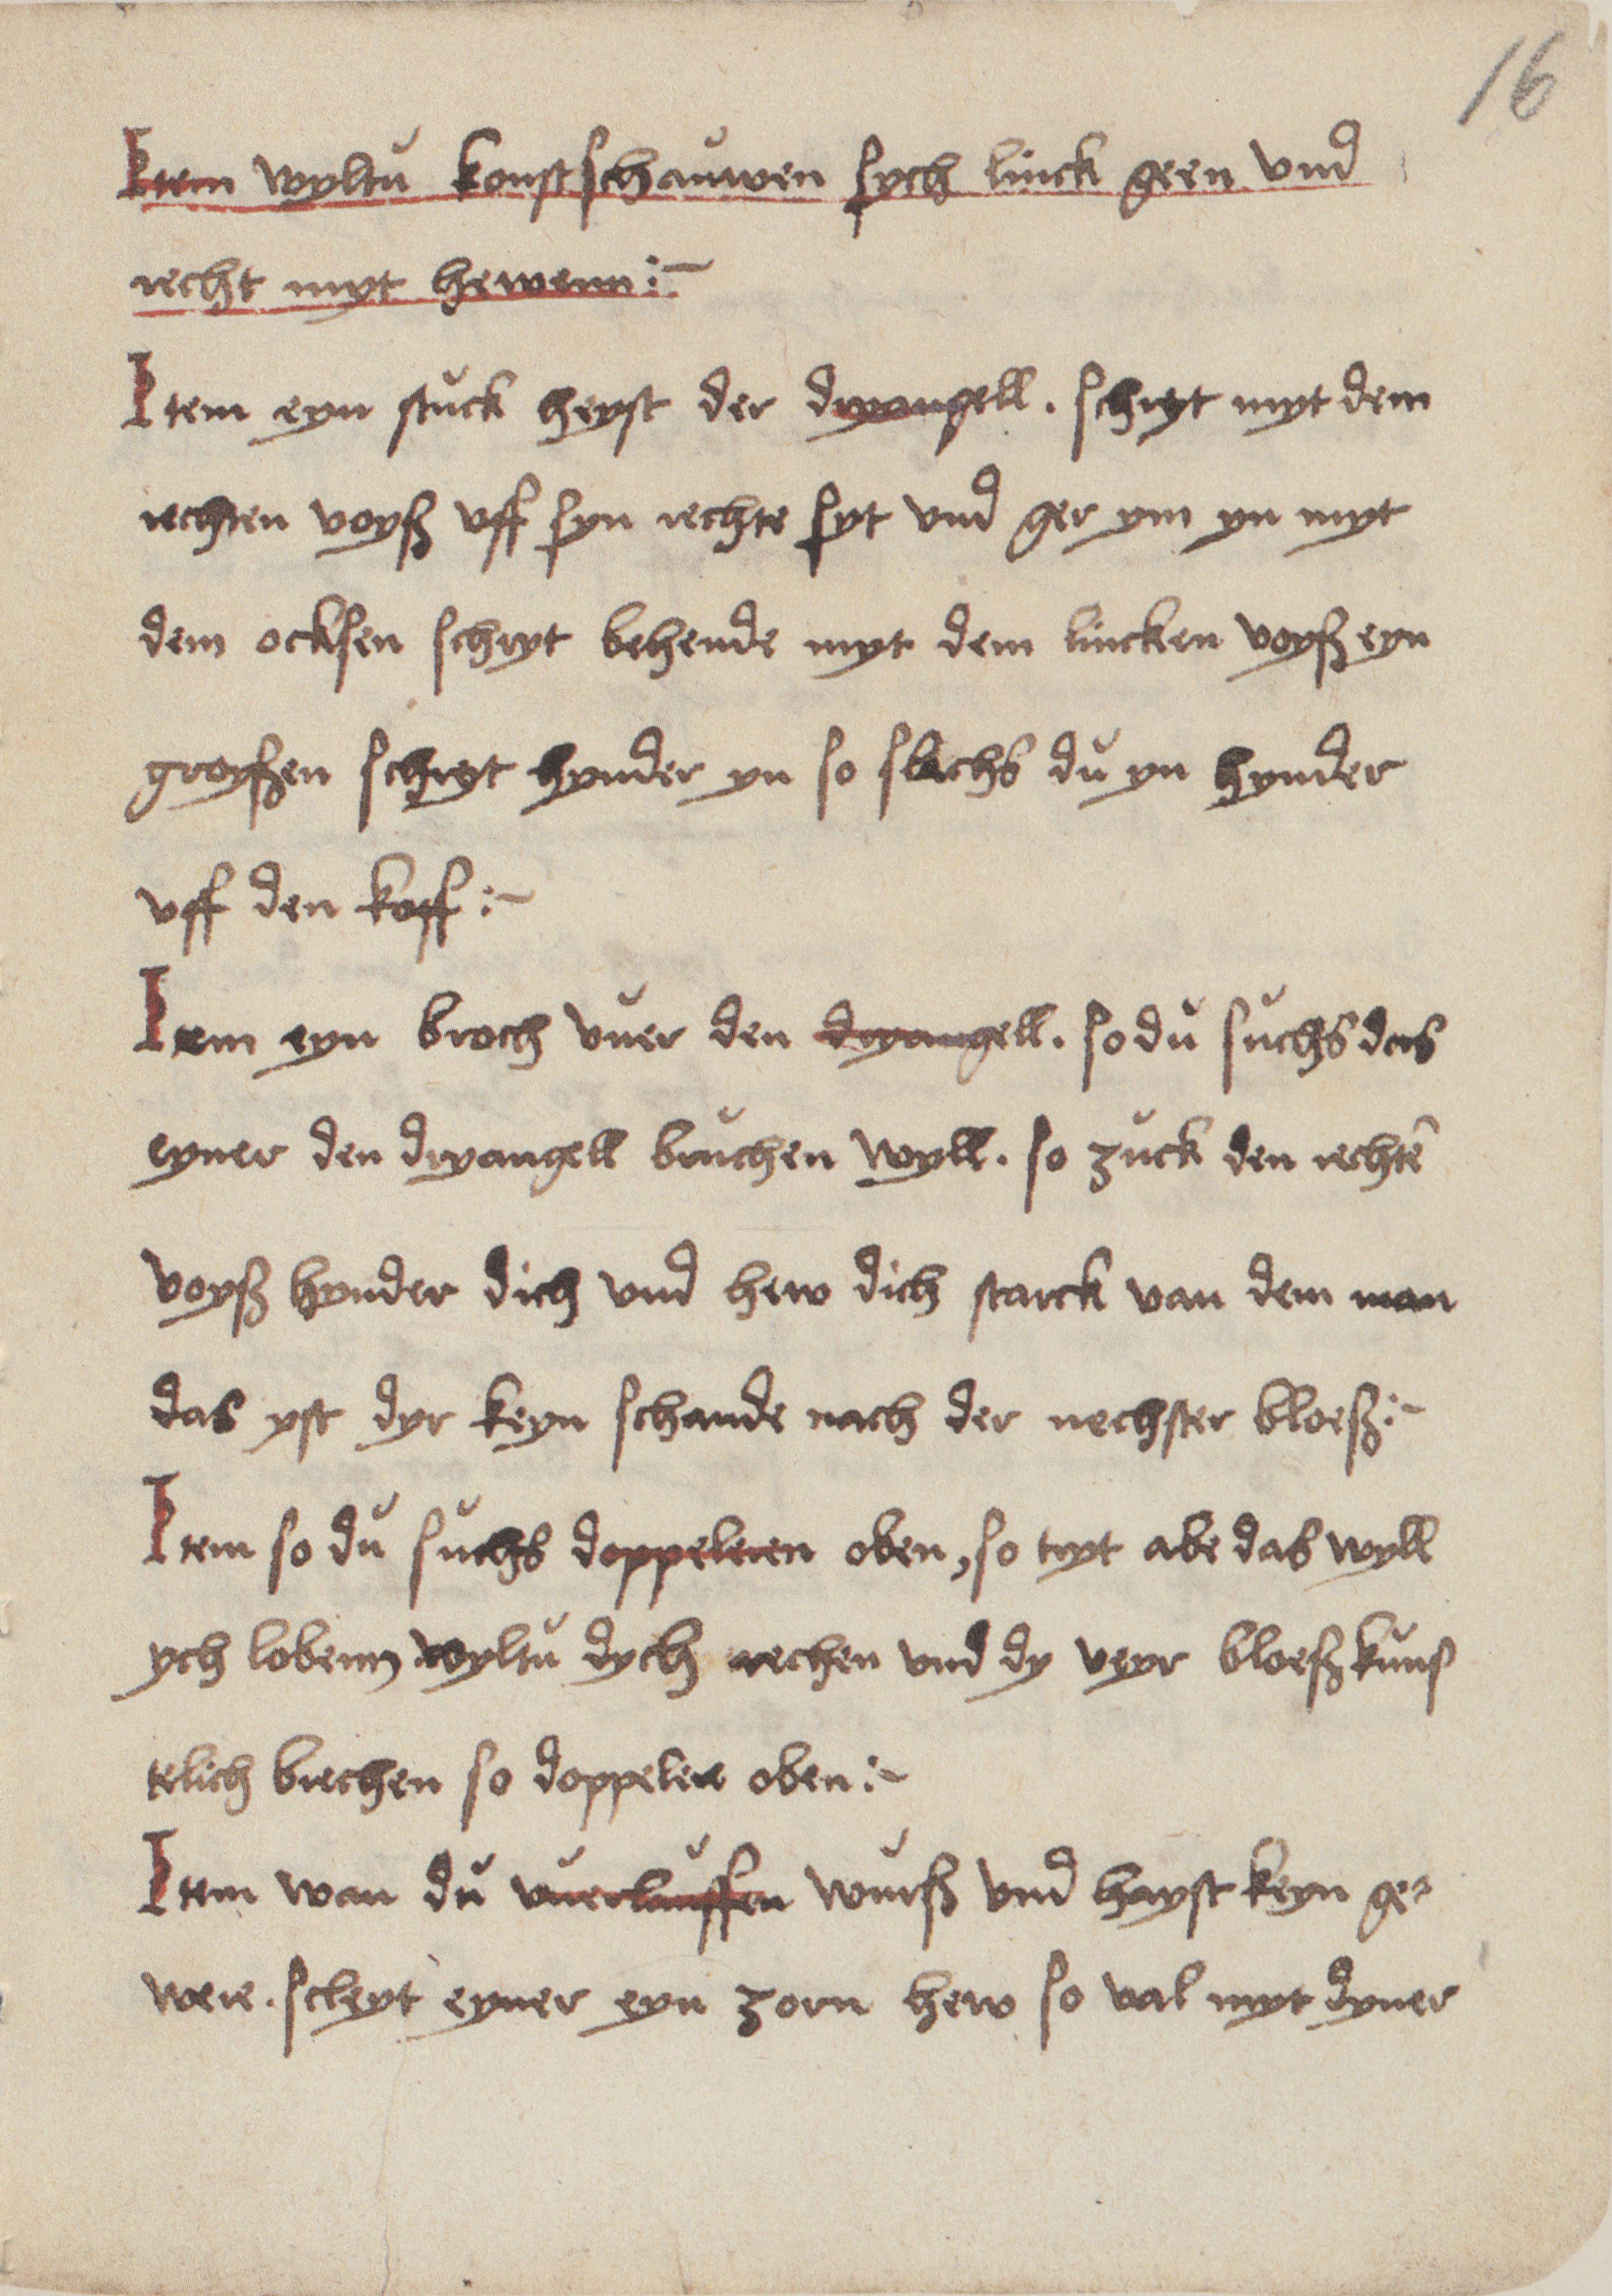 16
Item wyltu konst schauwen sych linck geen vnd
recht myt hewenn :~
Item eyn stuck heyst der dryangell. schryt myt dem
rechten voyß vff syn rechte syt vnd ger ym yn myt
dem ocksen schryt behende myt dem lincken voyß eyn
groyßen schryt hynder yn so slechs du yn hynder
vff den koff :~
Item eyn broch vuer den dryangell. so du suchs das
eyner den dryangell bruchen wyll. so zuck den rechtē
voyß hynder dich vnd hew dich starck van dem man
das yst dyr keyn schande nach der nechster bloeß :~
Item so du suchs doppeleren oben, so tryt abe das wyll
ych lobenn wyltu dych rechen vnd dy veyr bloeß kuns
telich brechen so doppelere oben :~
Item wan du vuerlauffen wurß vnd hayst keyn ge⸗
were. scleyt eyner eyn zorn hew so val myt dyner